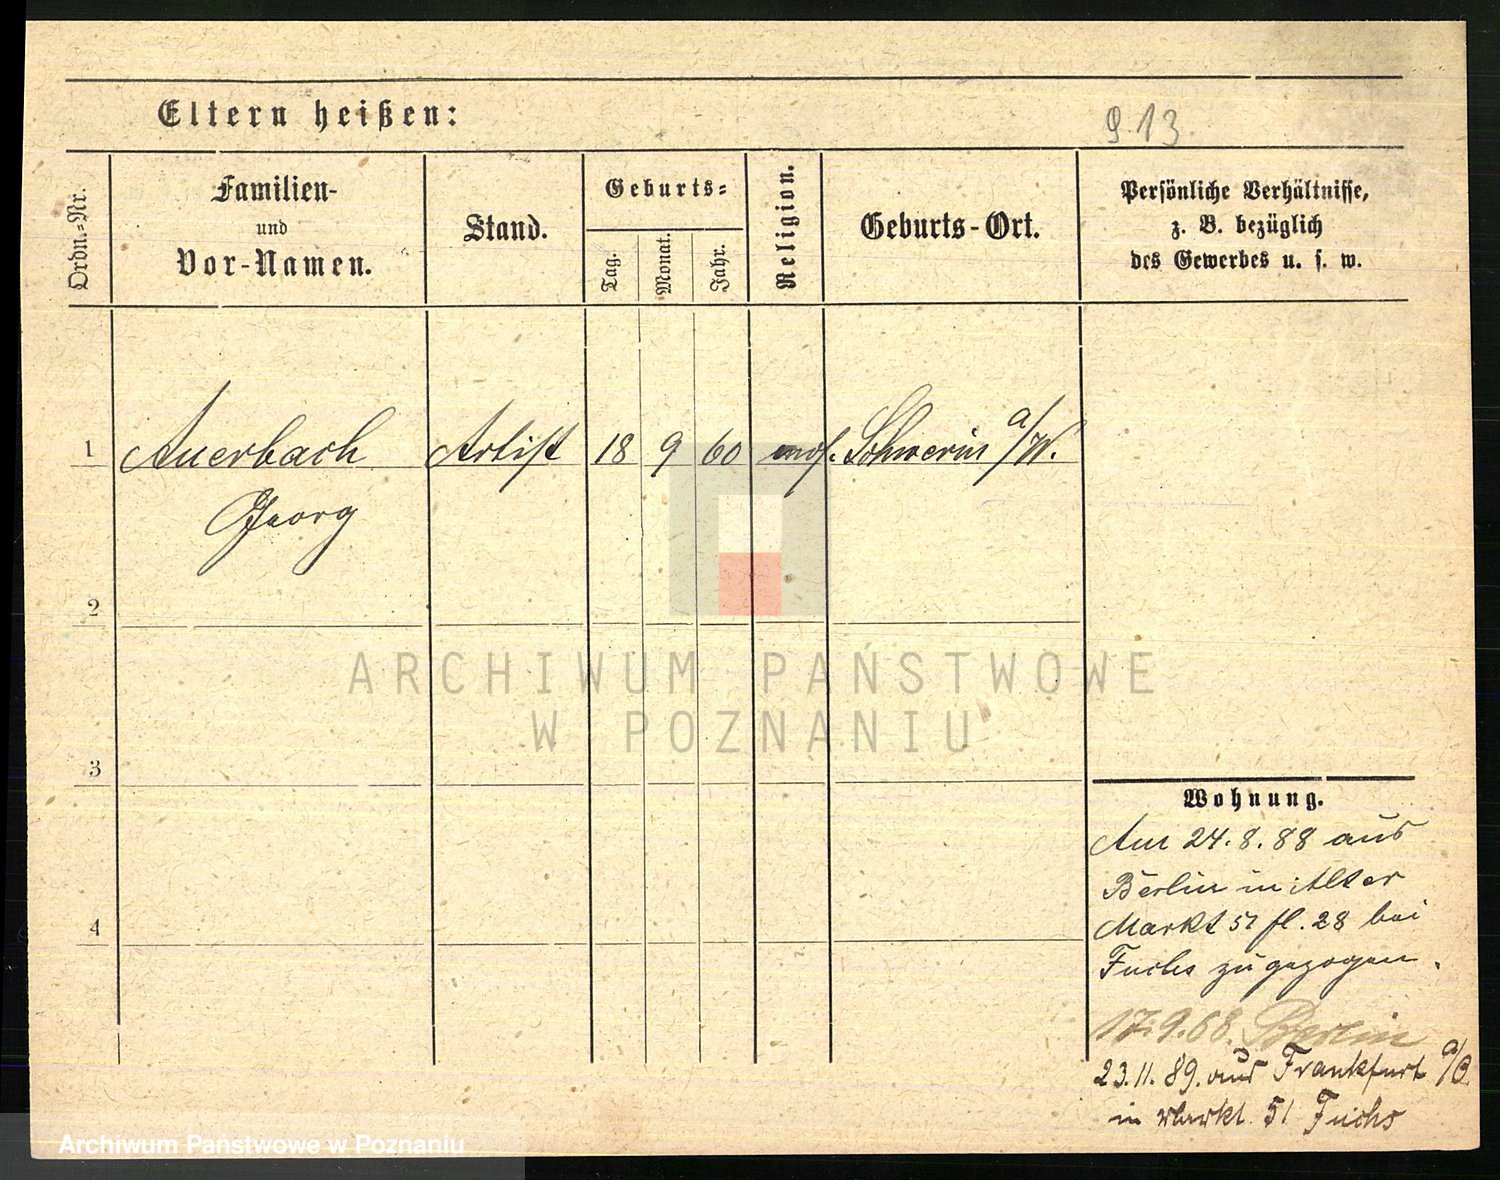 Eltern heißen:
9.13
Ordn.=Nr.
Familien-
und
Vor-Namen.
Stand.
Geburts=
Tag.
Monat.
Jahr.
Religion.
Geburts-Ort.
Persönliche Verhältnisse,
z. B. bezüglich
des Gewerbes u. s. w.
1 Auerbach Artist 18 9 60 mos. Schwerin a/W.
Georg
2
3
4
Wohnung.
Am 24.8.88 aus
Berlin in Alter
Markt 51 fl. 28 bei
Fuchs zugezogen.
17.9.88. Berlin
23.11.89. aus Frankfurt a/O.
in Markt. 51 Fuchs
ARCHIWUM PAŃSTWOWE
W POZNANIU
Archiwum Państwowe w Poznaniu